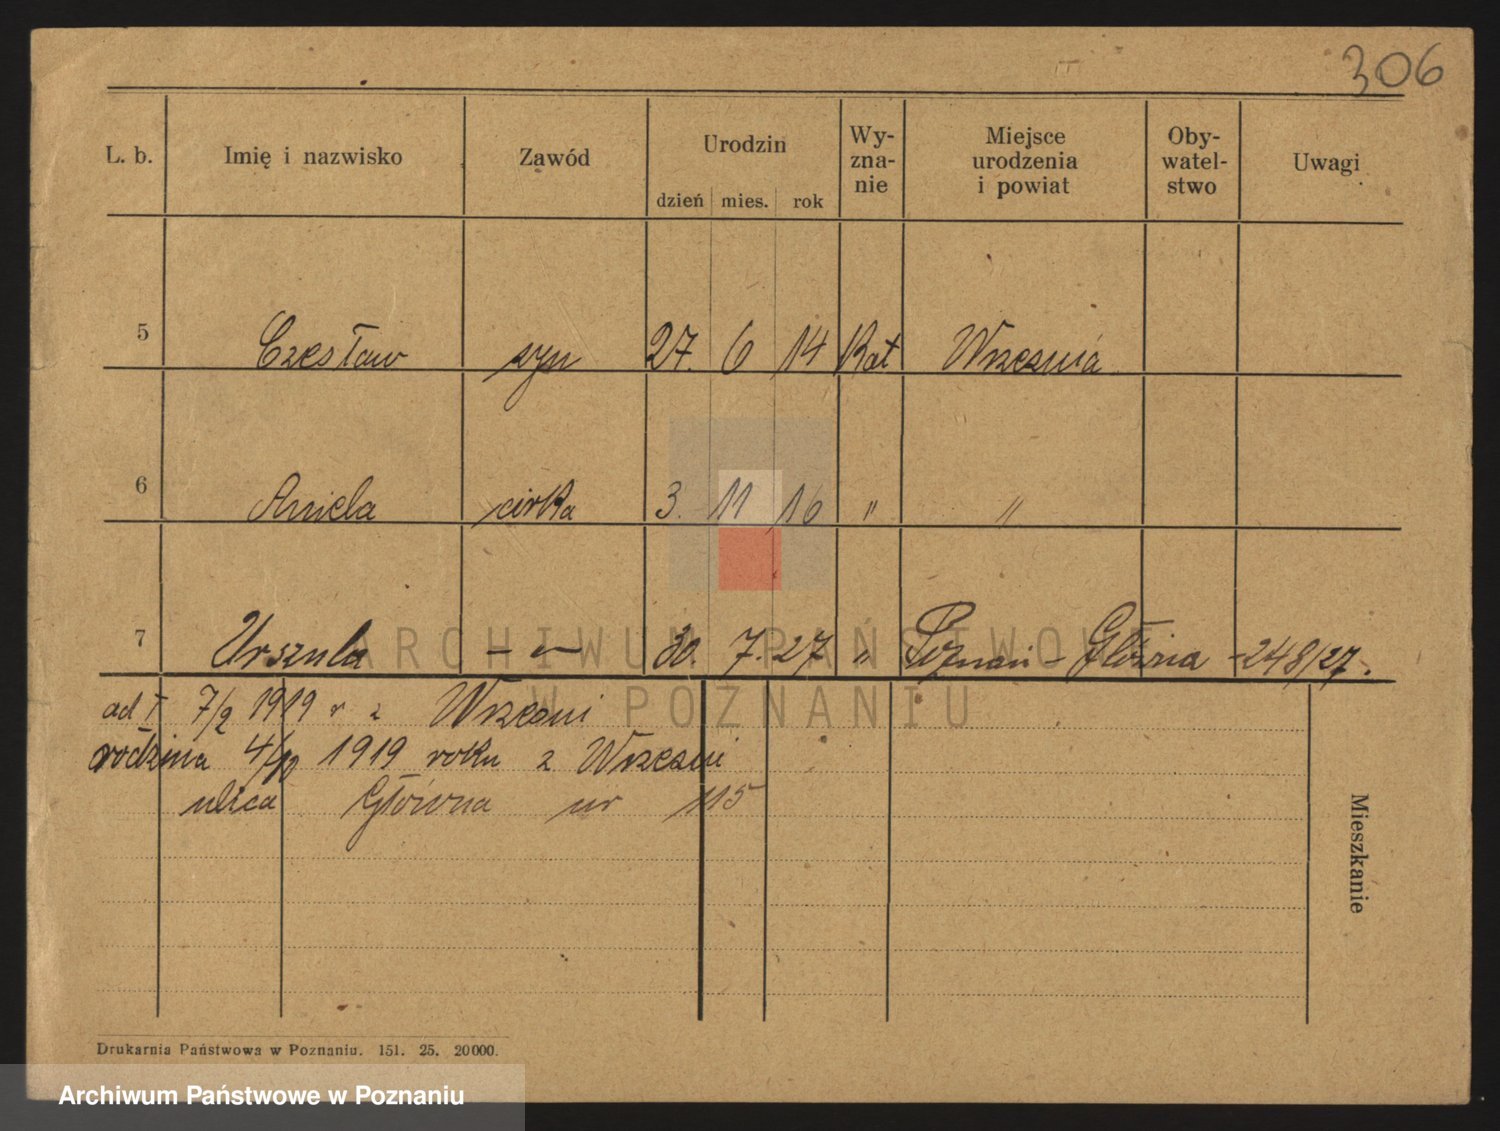 306
L. b. Imię i nazwisko Zawód Urodzin dzień mies. rok Wy-zna-nie Miejsce urodzenia i powiat Oby-watel-stwo Uwagi
5 Czesław syn 27. 6 14 Kat Wrzesnia
6 Aniela cirka 3. 11 16 " "
7 Urszula — " — 30. 7. 27 " Poznań - Główna - 248/27.
ARCHIWUM PAŃSTWOWE
W POZNANIU
od 7/2 1919 r z Wrzesni
rodzina 4/12 1919 roku z Wrzesni
ulica Główna nr 115
Mieszkanie
Drukarnia Państwowa w Poznaniu. 151. 25. 20000.
Archiwum Państwowe w Poznaniu